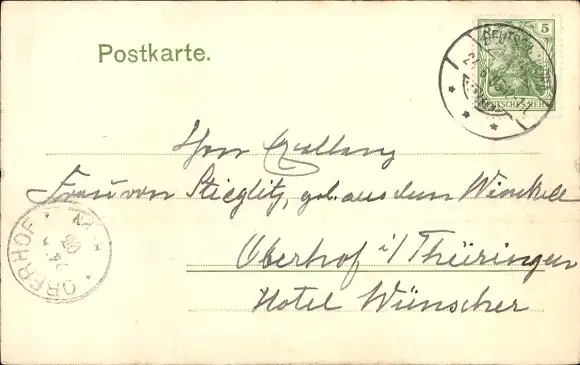 Postkarte.
5
DEUTSCHES REICH
Frau von Stieglitz, geb. aus dem Winckell
Oberhof i/ Thüringen
Hotel Wünscher
OBERHOF